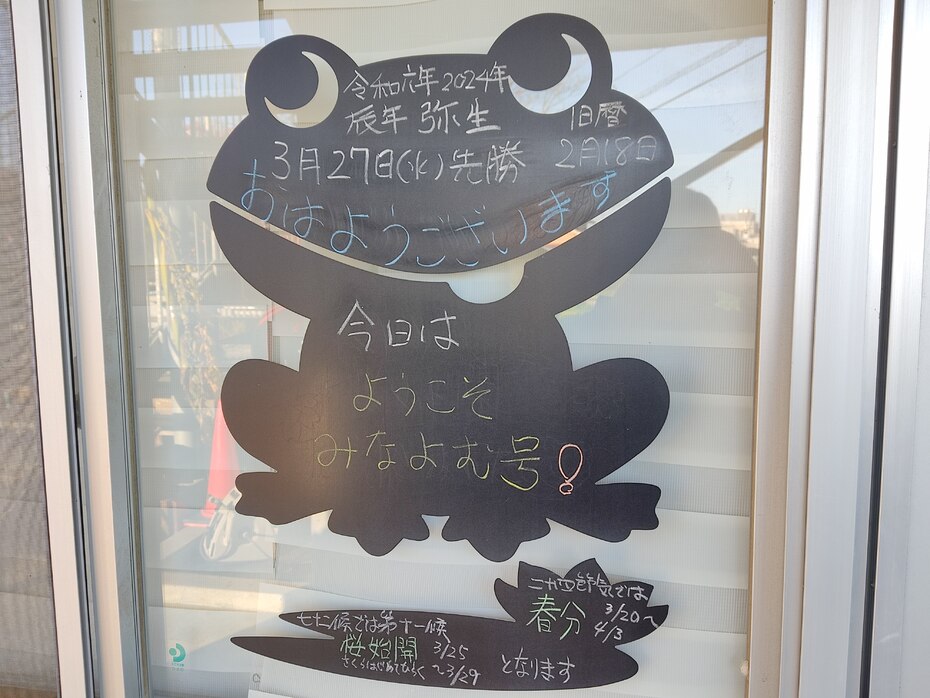 令和六年2024年
辰年 弥生 旧暦
3月27日(水)先勝 2月18日
おはようございます
今日は
ようこそ
みなよむ号!
二十四節気では
春分 3/20~
4/3
七十二候では第十一候
桜始開 3/25
さくらはじめてひらく ~3/29
となります